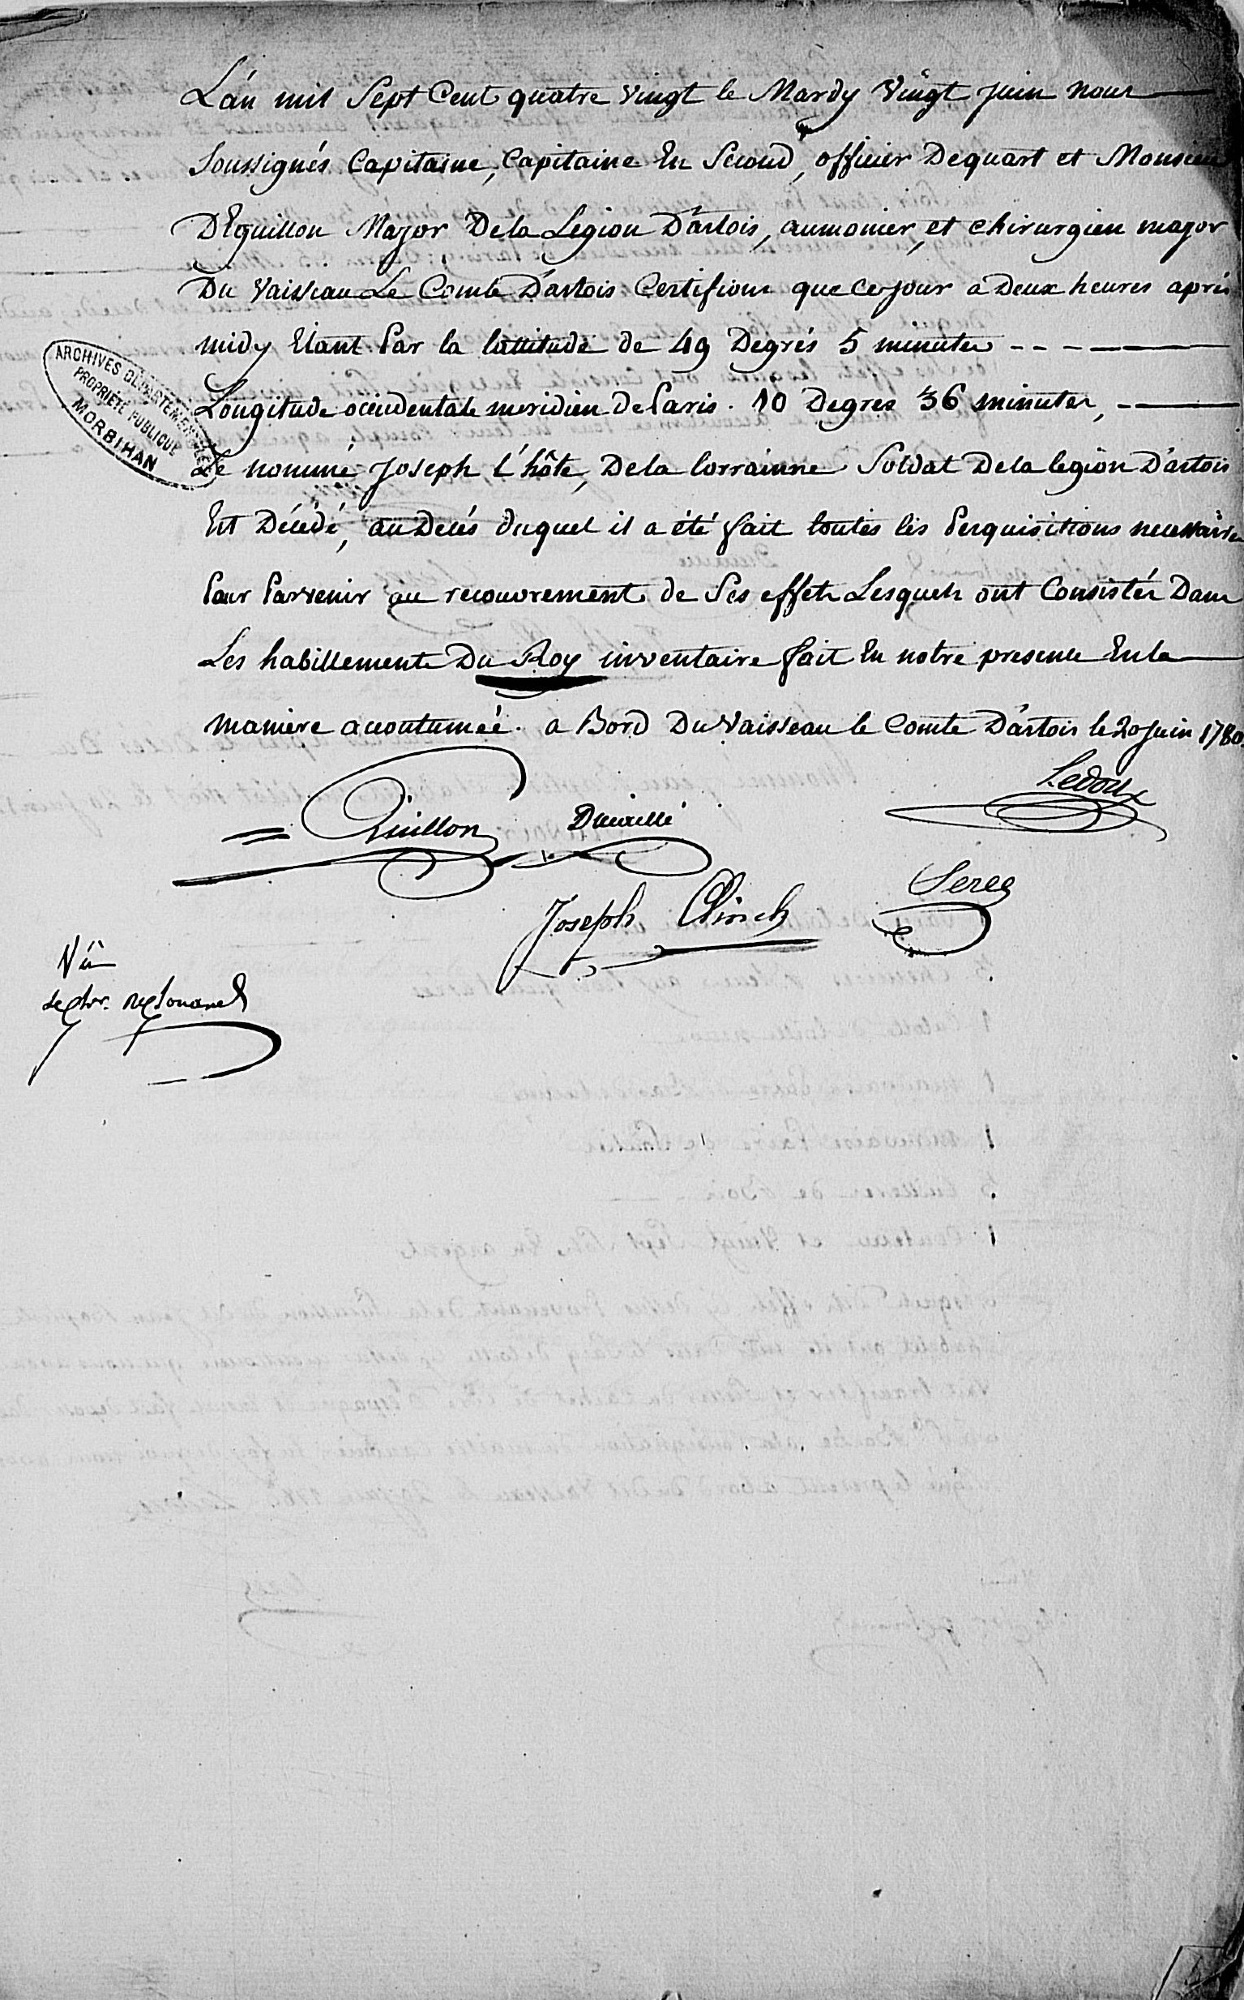 L'an mil Sept Cent quatre vingt le Mardy Vingt Juin nous
Soussignés Capitaine, Capitaine En Second, officier Dequart et Monsieur
D'Eguillon Major De la Légion D'artois, aumonier, et chirurgien major
Du Vaisseau Le Comte D'artois Certifions que ce jour a Deux heures aprés
midy Etant Par la lattitude de 49 Degrés 5 minutes
Longitude occidentale meridien de Paris. 10 Degres 36 minutes,
ARCHIVES DEPARTEMENTALES
PROPRIÉTÉ PUBLIQUE
MORBIHAN
Le nommé Joseph L'hôte, De la lorrainne Soldat De la legion D'artois
Est Décédé, au Decés duquel il a été fait toutes les Perquisitions necessaires
Pour Parvenir au recouvrement de Ses effets Lesquels ont Consistés Dans
Les habillements Du Roy inventaire fait En notre presence En la
maniere acoutumée. a Bord Du Vaisseau le Comte D'artois le 20 Juin 1780.
Ledoux
Joseph Clinch
Vû